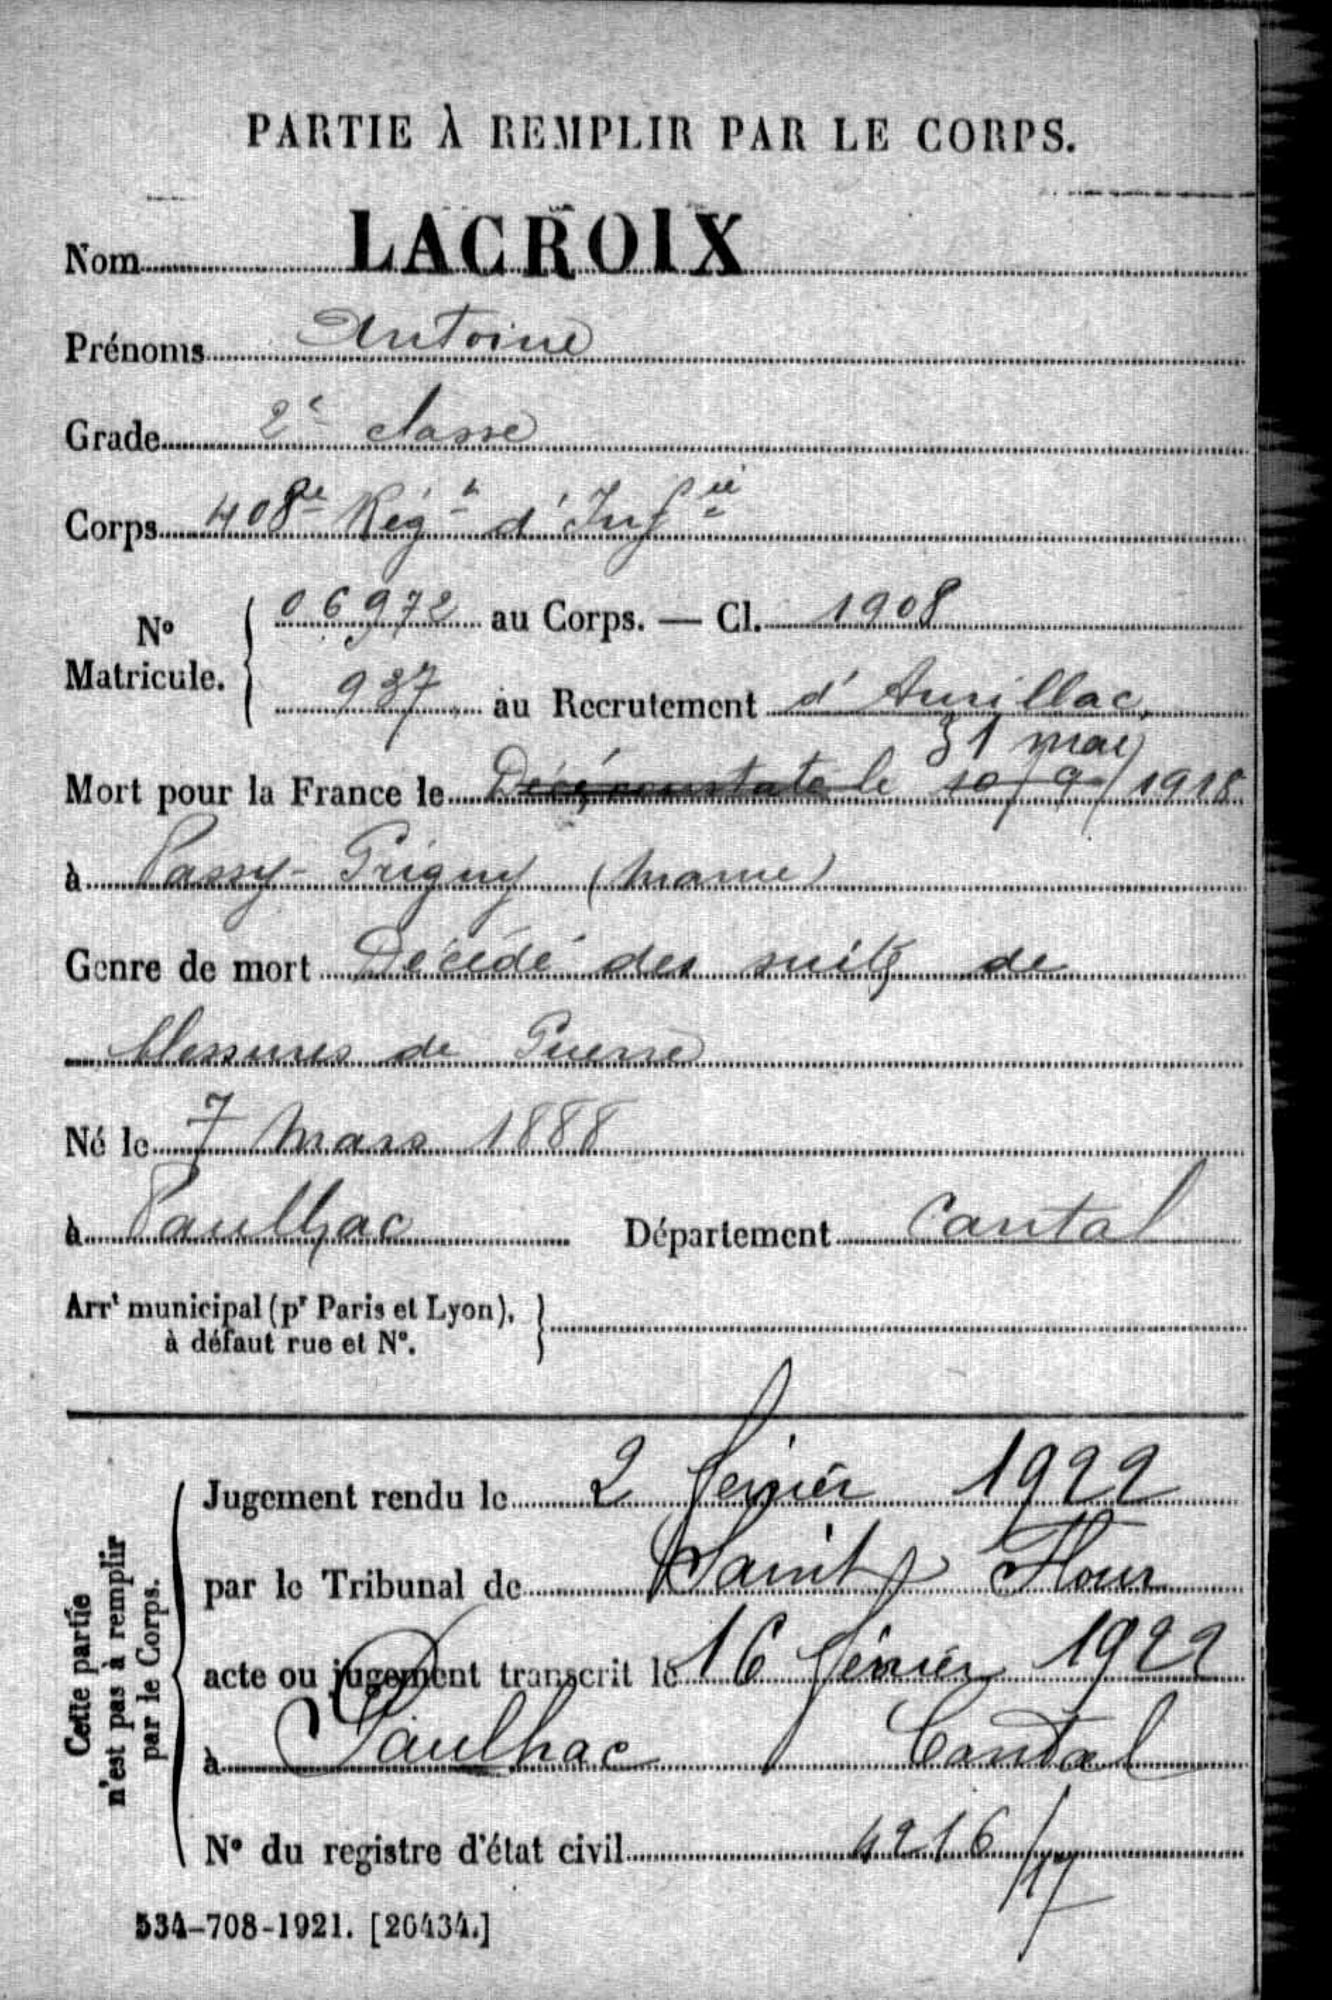 PARTIE À REMPLIR PAR LE CORPS.
Nom LACROIX
Prénoms Antoine
Grade 2e classe
Corps 408e Régt d'Infie
No Matricule. { 06972 au Corps. — Cl. 1908
937 au Recrutement d'Aurillac
31 mai
Mort pour la France le Décé constaté le 10/9/1918
à Passy-Grigny (Marne)
Genre de mort Décédé des suites de
blessures de Guerre
Né le 7 Mars 1888
à Paulhac Département Cantal
Arrt municipal (pr Paris et Lyon), }
à défaut rue et No.
Cette partie
n'est pas à remplir
par le Corps.
Jugement rendu le 2 février 1922
par le Tribunal de Saint Flour
acte ou jugement transcrit le 16 février 1922
à Paulhac Cantal
No du registre d'état civil 4216/17
534-708-1921. [26434.]